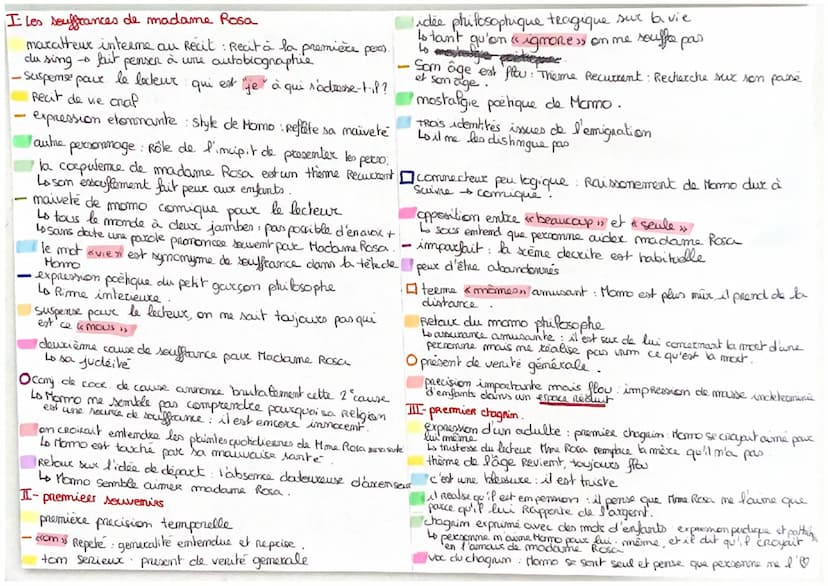 I- Les souffrances de madame Rosa
narratteur interne au Récit : Récit à la première pers.
du sing → fait penser à une autobiographie
- suspense pour le lecteur : qui est "je" à qui s'adresse-t-il ?
Récit de vie oral
- expression étonnante : style de Momo : reflète sa naïveté
autre personnage : Rôle de l'incipit de présenter les perso.
la corpulence de madame Rosa est un thème Récurrent
↳ son essouflement fait peur aux enfants.
- naïveté de momo comique pour le lecteur
↳ tous le monde à deux jambes : pas possible d'en avoir +
↳ sans doute une parole prononcée souvent par Madame Rosa.
le mot « vie » est synonyme de souffrance dans la tête de
Momo
- expression poëtique du petit garçon philosophe
↳ Rime interieure.
suspense pour le lecteur, on ne sait toujours pas qui
est ce « nous »
deuxième cause de souffrance pour Madame Rosa
↳ sa judéité
de cause annonce brutalement cette 2e cause
↳ Momo ne semble pas comprendre pourquoi sa Religion
est une source de souffrance : il est encore innocent.
on croirait entendre les plaintes quotidiennes de Mme Rosa
↳ Momo est touché par sa mauvaise santé.
Retour sur l'idée de départ : l'absence d'ascenseur
↳ Momo semble aimer madame Rosa.
II- premiers souvenirs
première précision temporelle
- Repeté : generalité entendue et reprise.
ton serieux - présent de verité generale
idée philosophique tragique sur la vie
↳ tant qu'on « ignore » on ne souffre pas
- Son âge est flou : Thème Recurrent : Recherche sur son passé
et son âge.
nostalgie poëtique de Momo.
TROIS identités issues de l'emigration
↳ il ne les distingue pas
connecteur peu logique : Raissonement de Momo dur à
suivre → comique.
opposition entre « beaucoup » et « seule »
↳ sous entend que personne aider madame Rosa
- imparfait : la scène décrite est habituelle
peur d'être abandonnés
terme « mômes » amusant : Momo est plus mûr, il prend de la
distance.
Retour du momo philosophe
↳ assurance amusante : il est sur de lui concernant la mort d'une
personne mais ne réalise pas vrm ce qu'est la mort.
présent de verité générale.
precision importante mais flou : impression de masse
d'enfants dans un espace réduit
III- premier chagrin.
expression d'un adulte : premier chagrin : Momo se croyait aimé pour
lui même
↳ tristesse du lecteur Mme Rosa remplace la mère qu'il n'a pas.
- thème de l'âge revient, toujours flou
c'est une blessure : il est triste
il realise qu'il est en pension : il pense que Mme Rosa ne l'aime que
parce qu'il lui Rapporte de l'argent.
chagrin exprimé avec des mots d'enfants : expression poëtique et
↳ personne n'aime Momo pour lui-même, et il dit qu'il croyait
en l'amour de madame Rosa
du chagrin : Momo se sent seul et pense que personne ne l'♡